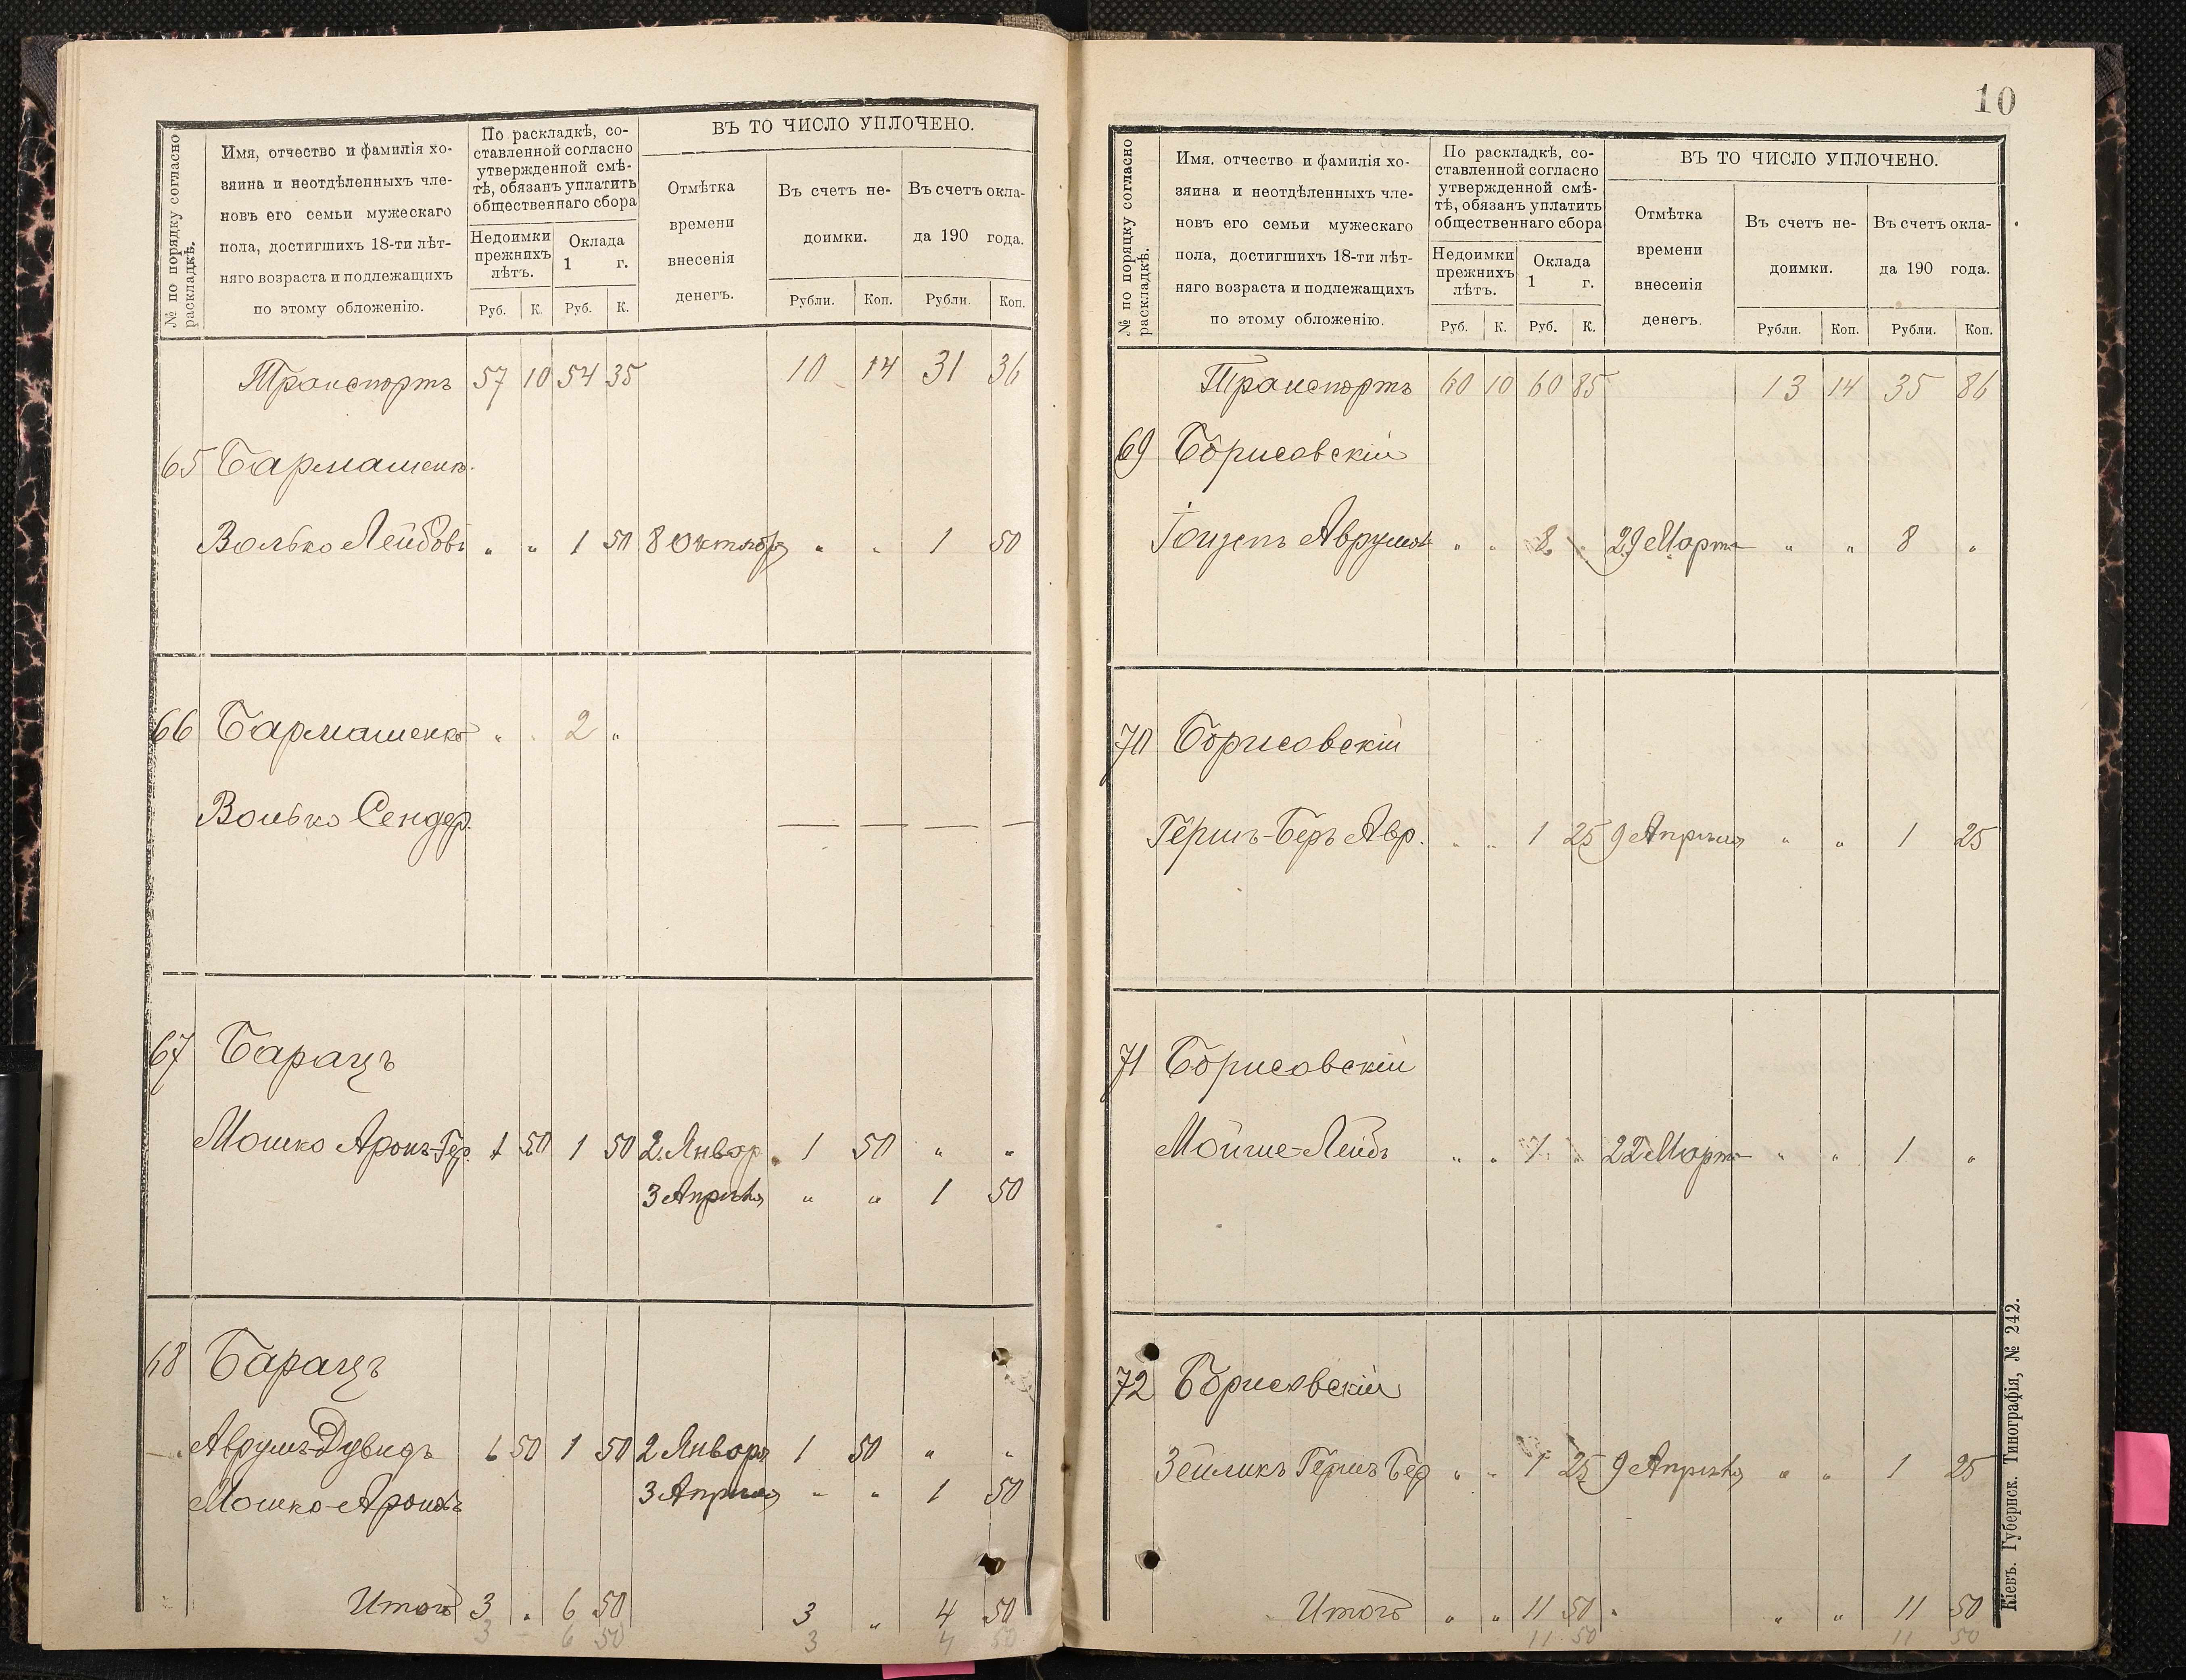 № по порядку согласно раскладкѣ.
Имя, отчество и фамилія хо-
зяина и неотдѣленныхъ чле-
новъ его семьи мужескаго
пола, достигшихъ 18-ти лѣт-
няго возраста и подлежащихъ
по этому обложенію.
По раскладкѣ, со-
ставленной согласно
утвержденной смѣ-
тѣ, обязанъ уплатить
общественнаго сбора
Недоимки
прежнихъ
лѣтъ.
Оклада
1 г.
Руб. К. Руб. К.
ВЪ ТО ЧИСЛО УПЛОЧЕНО.
Отмѣтка
времени
внесенія
денегъ.
Въ счетъ не-
доимки.
Въ счетъ окла-
да 190 года.
Рубли. Коп. Рубли. Коп.
Транспортъ 57 10 54 35 10 14 31 36
65 Бармашенк.
Волько Лейбовъ " " 1 50 8 Октября " " 1 50
66 Бармашенко " " 2 "
Волько Сендер. — — — —
67 Барацъ
Мошко Аронъ-Гер. 1 50 1 50 2 Январ. 1 50 " "
3 Апрѣля " " 1 50
68 Барацъ
Аврумъ-Дувидъ 1 50 1 50 2 Января 1 50 " "
Мошко-Ароновъ 3 Апрѣля " " 1 50
Итого 3 " 6 50 3 " 4 50
3 – 6 50 3 4 50
10
№ по порядку согласно раскладкѣ.
Имя. отчество и фамилія хо-
зяина и неотдѣленныхъ чле-
новъ его семьи мужескаго
пола, достигшихъ 18-ти лѣт-
няго возраста и подлежащихъ
по этому обложенію.
По раскладкѣ, со-
ставленной согласно
утвержденной смѣ-
тѣ, обязанъ уплатить
общественнаго сбора
Недоимки
прежнихъ
лѣтъ.
Оклада
1 г.
Руб. К. Руб. К.
ВЪ ТО ЧИСЛО УПЛОЧЕНО.
Отмѣтка
времени
внесенія
денегъ.
Въ счетъ не-
доимки.
Въ счетъ окла-
да 190 года.
Рубли. Коп. Рубли. Коп.
Транспортъ 60 10 60 85 13 14 35 86
69 Борисовскій
Іоцепъ Аврумов " " 8 " 29 Марта " " 8 "
70 Борисовскій
Гершъ-Беръ Авр. " " 1 25 9 Апрѣля " " 1 25
71 Борисовскій
Мойше-Лейбъ " " 1 " 22 Марта " " 1 "
72 Борисовскій
Зейликъ Гершъ Бер " " 1 25 9 Апрѣля " " 1 25
Итого " " 11 50 " " " 11 50
11 50 11 50
Кіевъ. Губернск. Типографія, № 242.